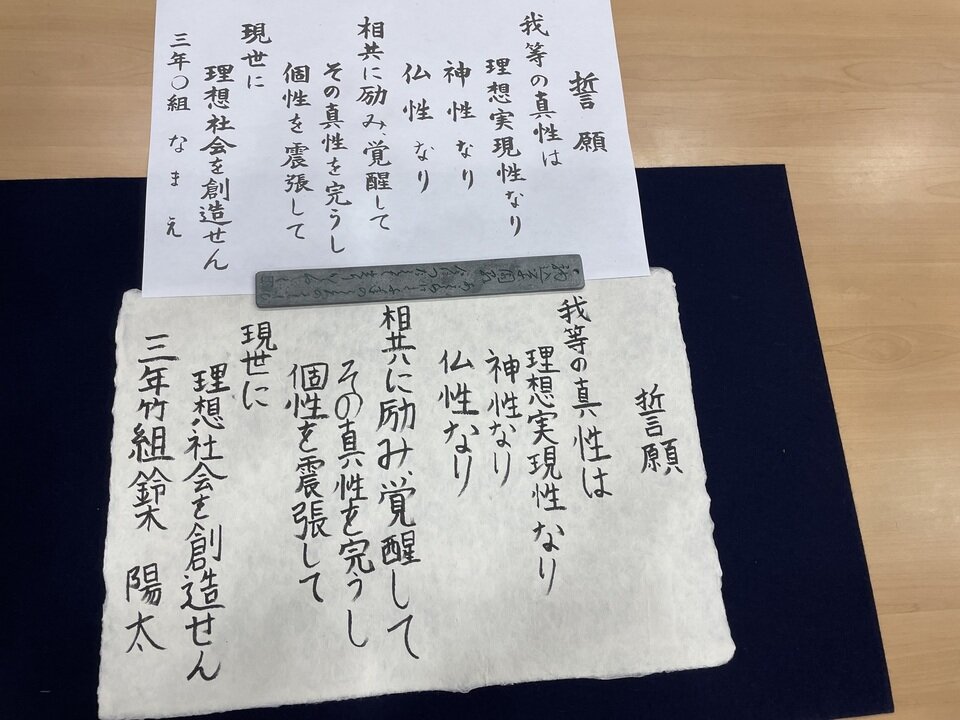 誓願
我等の真性は
理想実現性なり
神性なり
仏性なり
相共に励み、覚醒して
その真性を完うし
個性を震張して
現世に
理想社会を創造せん
三年〇組 なまえ
誓願
我等の真性は
理想実現性なり
神性なり
仏性なり
相共に励み、覚醒して
その真性を完うし
個性を震張して
現世に
理想社会を創造せん
三年竹組鈴木 陽太